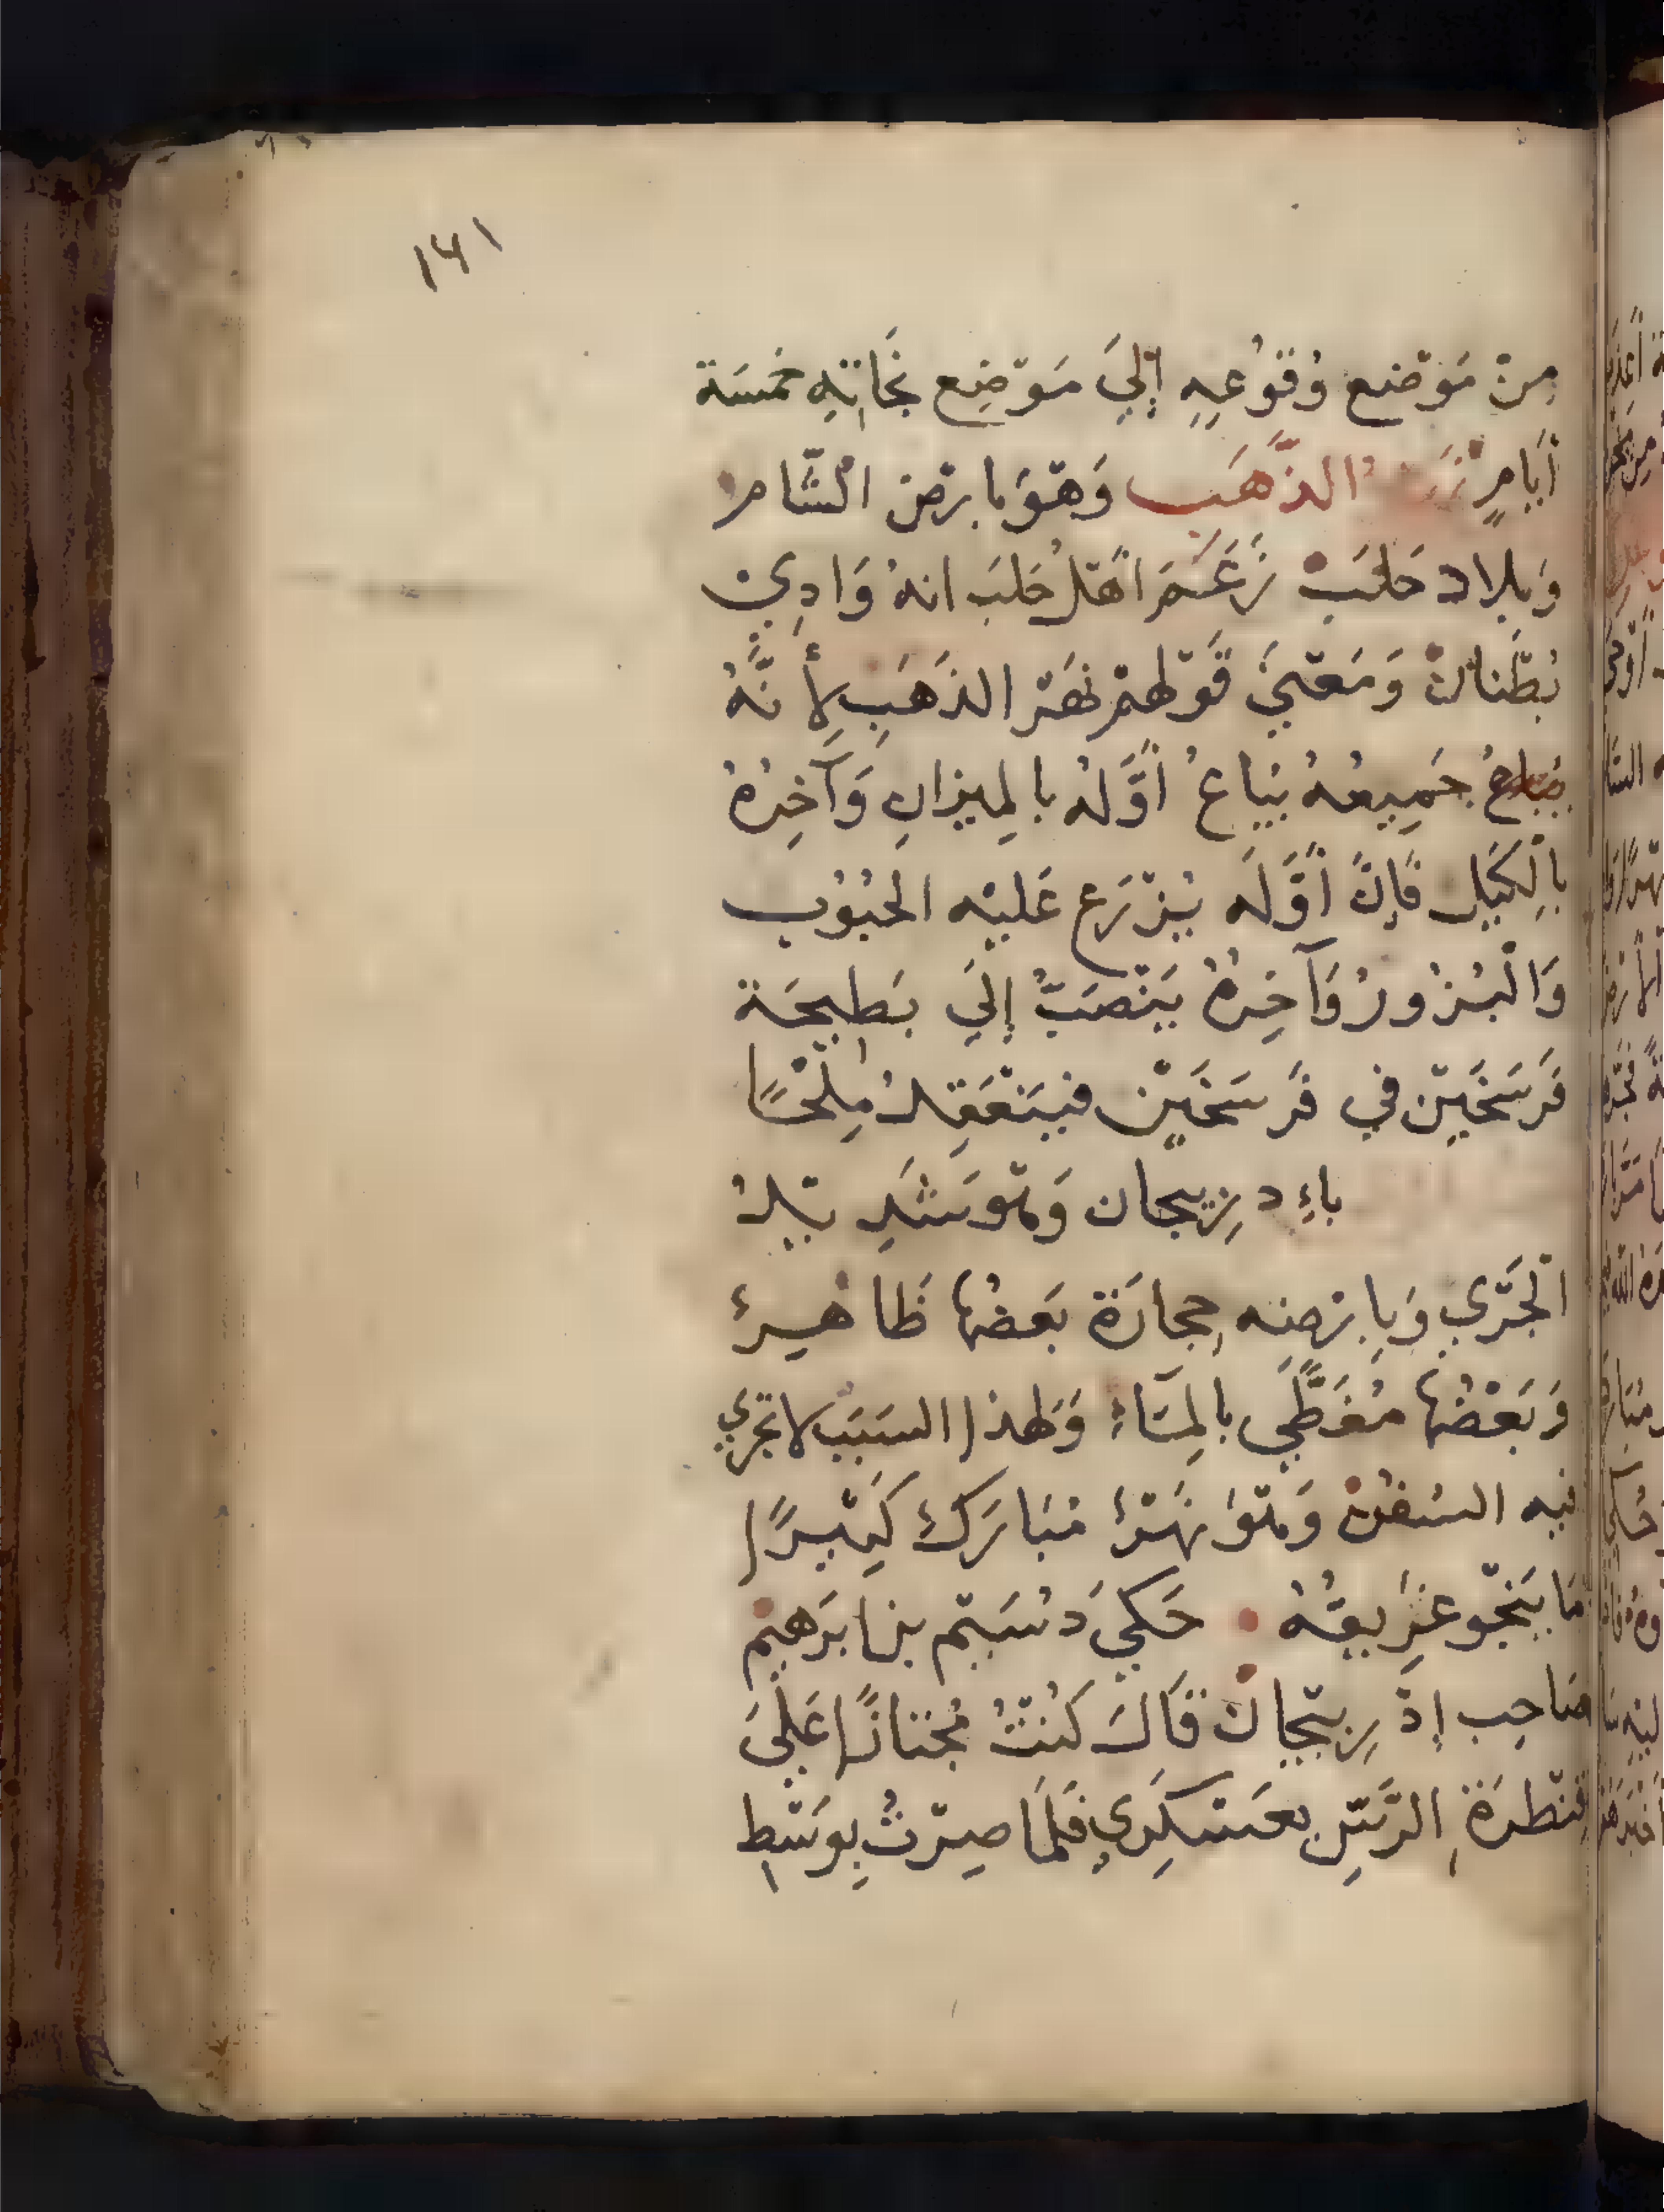 ١٤١
مِنْ مَوْضِع وُقُوْعِهِ إِلَيَ مَوْضِع نَجَاتِهِ خمسَة
أيَامٍ الذَّهَب وَهْوَ بارْض الشَّامر
وَبلاد حَلَبْ زَعَمَ اهْل حَلبَ انهُ وَادِيْ
بُطْنانْ وَمَعْنَيَ قَوْلهمْ نهَرْ الذهَب لِأَنَّهُ
جَمِيعُهُ يُبَاعُ أَوَّلهُ بالمِيزانِ وَآخِرُهُ
بالْكَيْلِ فَإنَّ أَوَّلَه يُزْرَع عَليْه الحُبُوُب
وَالْبُزُورُ وَآخِرهُ يَنْصَبُّ إلَيَ بَطِيحَة
فَرسَخَيْن في فَرسَخَيْن فيَنْعَقِدُ مِلْحًا
باءِدرِيجان وَهْوَ شَدِيدُ
الْجَرْي وَبِارْضِه حِجارَة بَعضُها ظَاهِرُ
وَبَعْضُهَا مُغَطَّي بالمَاءِ وَلهذا السَبَب لا تجْرِي
فيه السُفُنْ وَهْوَ نَهَرُ مُبَارَكُ كَثِيرًا
مَا يَنْجُو غرِيقهُ ٠ حَكيَ دُسَيْم بن ابرَهيْم
صَاحِب إذْرِيْجانْ قَالَ كُنْتُ مُجْتازًا عَلَيَ
قنْطرَة الرَّسِّ بعَسْكَرِي فَلَمَا صِرْتُ بِوَسْطِ